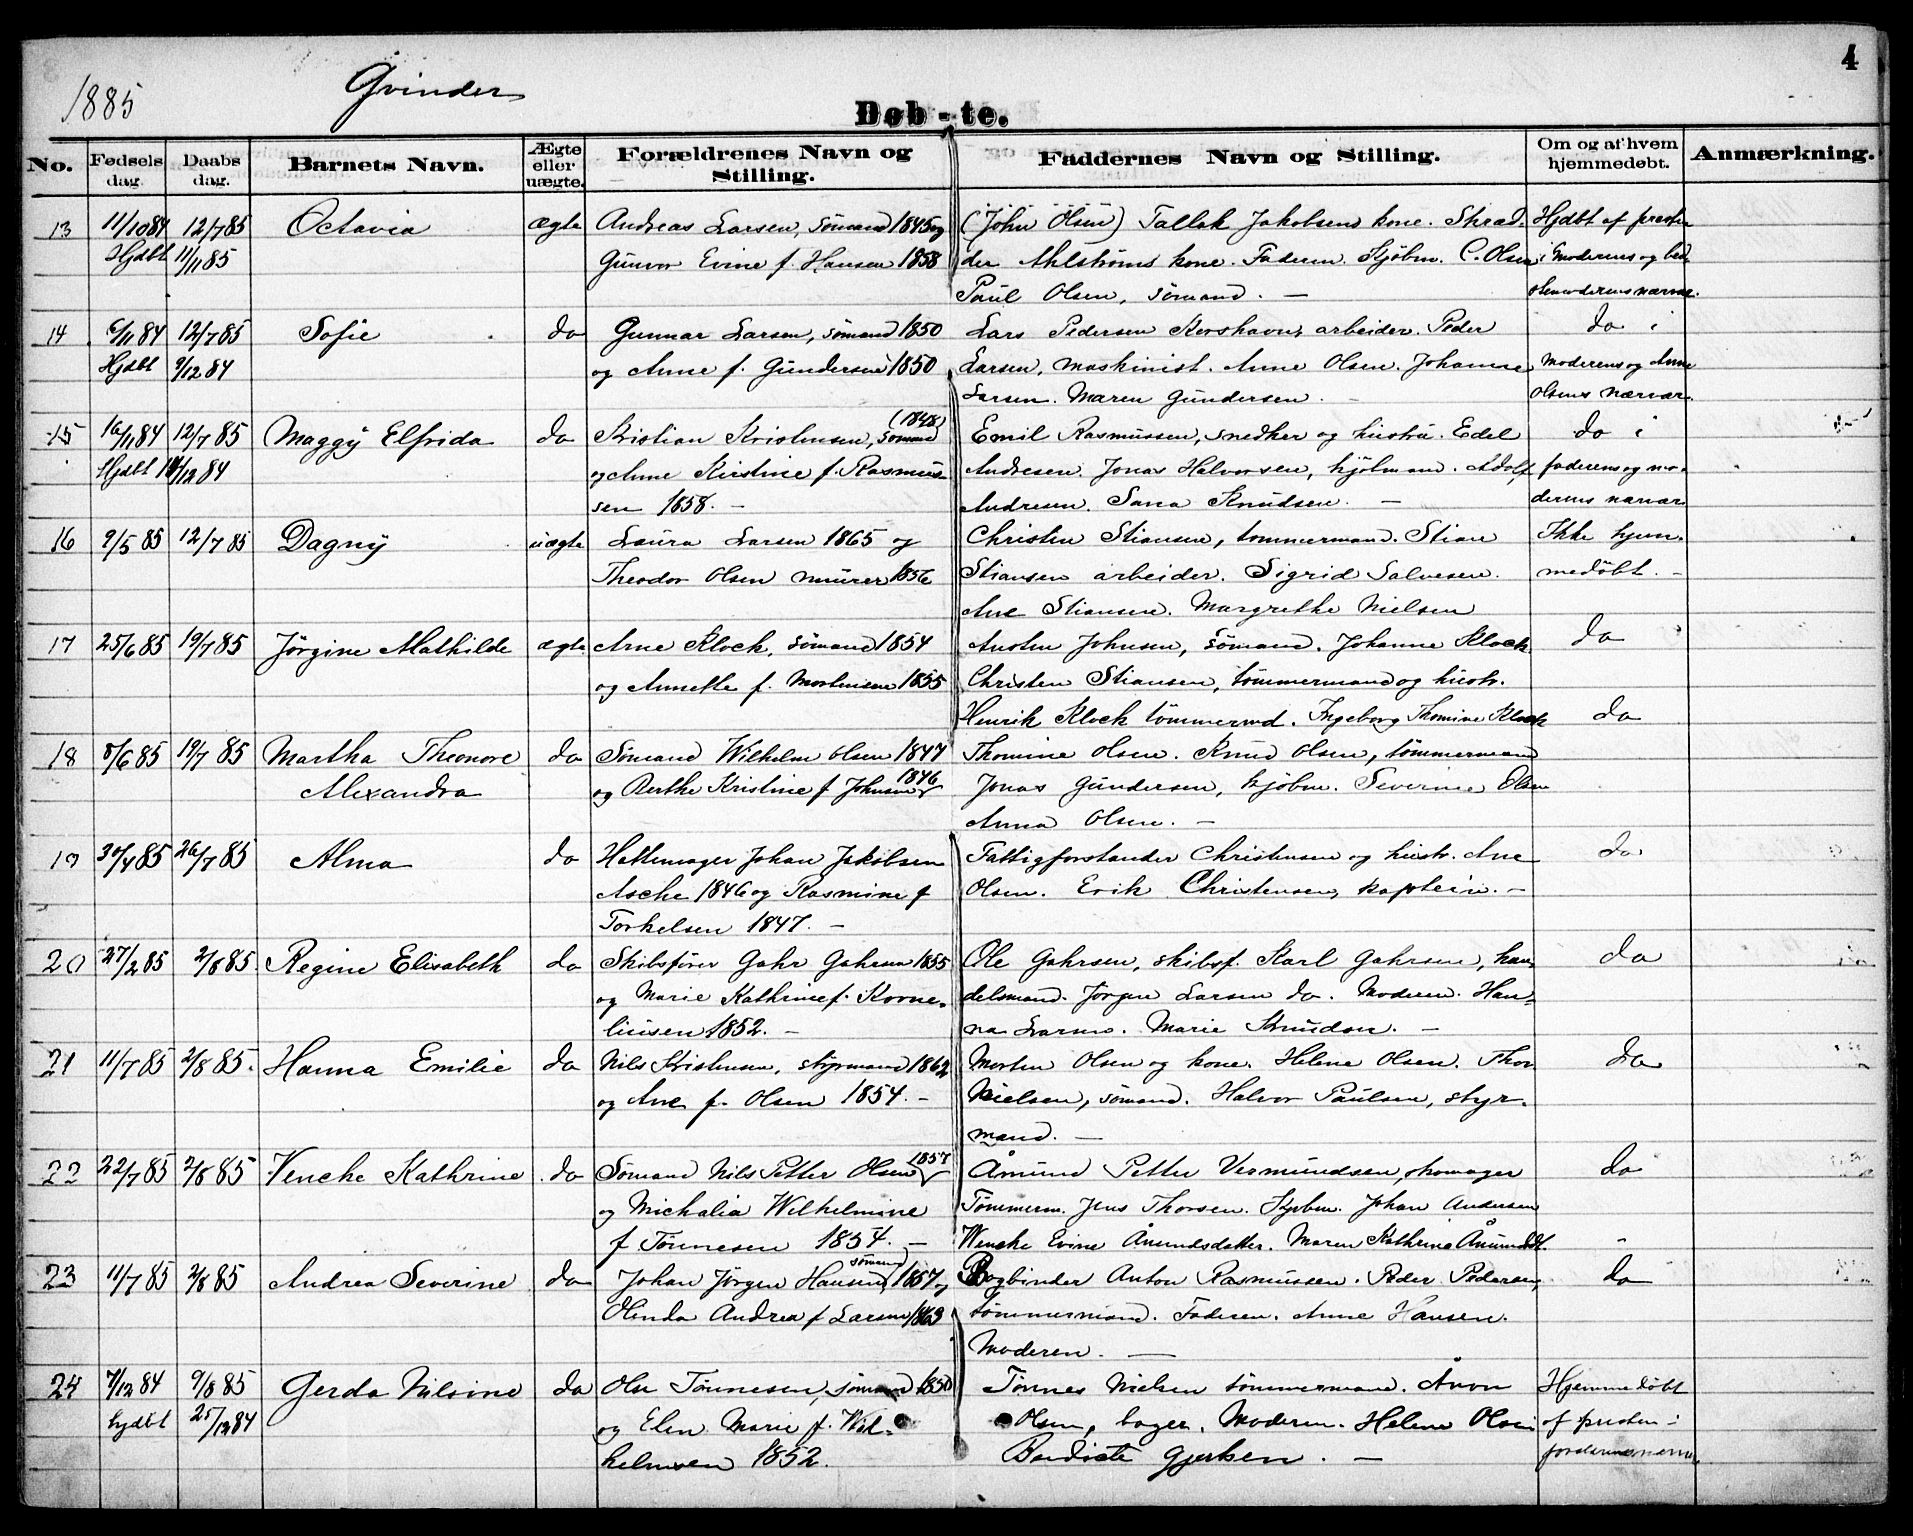 4
1885 Qvinder
Døb-te.
No. Fødsels dag. Daabs dag. Barnets Navn. Ægte eller uægte. Forældrenes Navn og Stilling. Faddernes Navn og Stilling. Om og af hvem hjemmedøbt. Anmærkning.
13 11/10 84 12/7 85 Octavia ægte Andreas Larsen, sømand 1845 og (John Olsen) Tallak Jakobsens kone. Skræd- Hjdbt af presten
Hjdbt 11/11 85 Gunvor Evine f. Hansen 1858 der Ahlstrøms kone. Faderen. Kjøbm. C. Olsen i moderens og bed-
Paul Olsen, sømand. — stemoderens nærvær.
14 6/11 84 12/7 85 Sofie do Gunnar Larsen, sømand 1850 Lars Pedersen Korshavn, arbeider. Peder do i
Hjdbt 9/12 84 og Anne f. Gundersen 1850 Larsen, maskinist. Anne Olsen. Johanne moderens og Anne
Larsen. Maren Gundersen. — Olsens nærvær.
15 16/11 84 12/7 85 Maggy Elfrida do Kristian Kristensen, sømand (1848) Emil Rasmussen, snedker og hustru. Edel do i
Hjdbt 14/12 84 og Anne Kirstine f. Rasmus- Andresen. Jonas Halvorsen, kjøbmand. Adolf faderens og mo-
sen 1858. — Andresen. Sana Knudsen. — derens nærvær.
16 9/5 85 12/7 85 Dagny uægte Laura Larsen 1865 og Christen Stiansen, tømmermand. Stian Ikke hjem-
Theodor Olsen murer 1856 Stiansen arbeider. Sigrid Salvesen. medøbt. —
Ane Stiansen. Margrethe Nielsen
17 25/6 85 19/7 85 Jørgine Mathilde ægte Arne Klock, sømand 1854 Austen Johnsen, sømand. Johanne Klock. do
og Annette f. Mortensen 1855 Christen Stiansen, tømmermand og hustr.
Henrik Klock tømmermd. Ingeborg Thomine Klock do
18 8/6 85 19/7 85 Martha Theonore do Sømand Wilhelm Olsen 1847 Thomine Olsen. Knud Olsen, tømmermand
Alexandra og Berthe Kristine f Johnsen 1846 Jonas Gundersen, kjøbm. Severine Olsen
Anna Olsen. —
19 30/4 85 26/7 85 Alma do Hattemager Johan Jakobsen Fattigforstander Christensen og hustr. Ane do
Asche 1846 og Rasmine f Olsen. Erik Christensen, kaptein. —
Torkelsen 1847. —
20 27/2 85 2/8 85. Regine Elisabeth do Skibsfører Gahr Gahrsen 1855 Ole Gahrsen, skibsf. Karl Gahrsen, han- do
og Marie Kathrine f. Korne- delsmand. Jørgen Larsen do. Moderen. Han-
liusen 1852. — na Larsen. Marie Knudsen. —
21 11/7 85 2/8 85. Hanna Emilie do Nils Kristensen, styrmand 1862 Morten Olsen og kone. Helene Olsen. Thor do
og Ane f. Olsen 1854. — Nielsen, sømand. Halvor Paulsen, styr-
mand. —
22 22/7 85 2/8 85 Venche Kathrine do Sømand Nils Petter Olsen 1857 Åmund Petter Vermundsen, skomager do
og Michalia Wilhelmine Tømmerm. Jens Thorsen. Kjøbm. Johan Andersen
f Tønnesen 1854. — Wenche Evine Åmundsdatter. Maren Kathrine Åmundsdt.
23 11/7 85 2/8 85 Andrea Severine do Johan Jørgen Hansen, sømand 1857 og Bogbinder Anton Rasmussen. Peder Pedersen, do
Olenda Andrea f Larsen 1863 tømmermand. Faderen. Anne Hansen.
Moderen. —
24 7/12 84 9/8 85 Gerda Nilsine do Ole Tønnesen, sømand 1850 Tønnes Nielsen tømmermand. Aron Hjemmedøbt
hjdbt 25/12 84 og Elen Marie f. Wil- Olsen, bager. Moderen. Helene Olsen af presten i
helmsen 1852. Bendicte Gjertsen. —